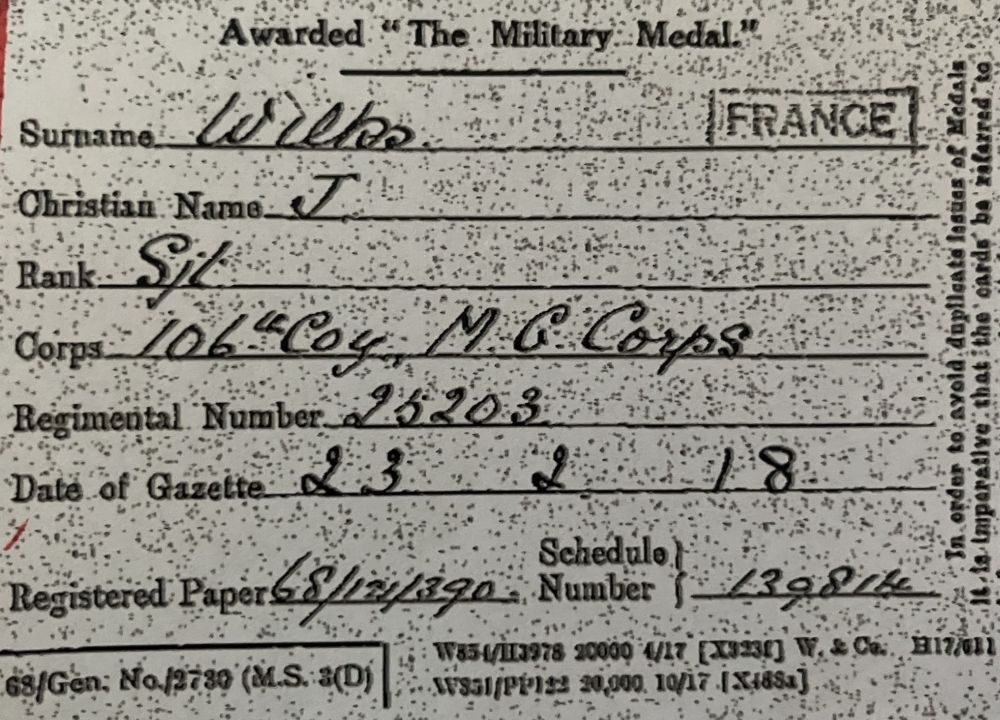 Awarded “The Military Medal.”
Surname Wilks. FRANCE
Christian Name J
Rank Sjt
Corps 106th Coy, M. G. Corps
Regimental Number 25203
Date of Gazette 23 2 18
Registered Paper 68/121/390. Schedule Number 139814
68/Gen. No./2730 (M.S. 3(D)
W854/H3978 20000 4/17 [X323f] W. & Co. H17/611
W851/PP122 20,000 10/17 [X488a]
In order to avoid duplicate issues of Medals
it is imperative that the cards be referred to